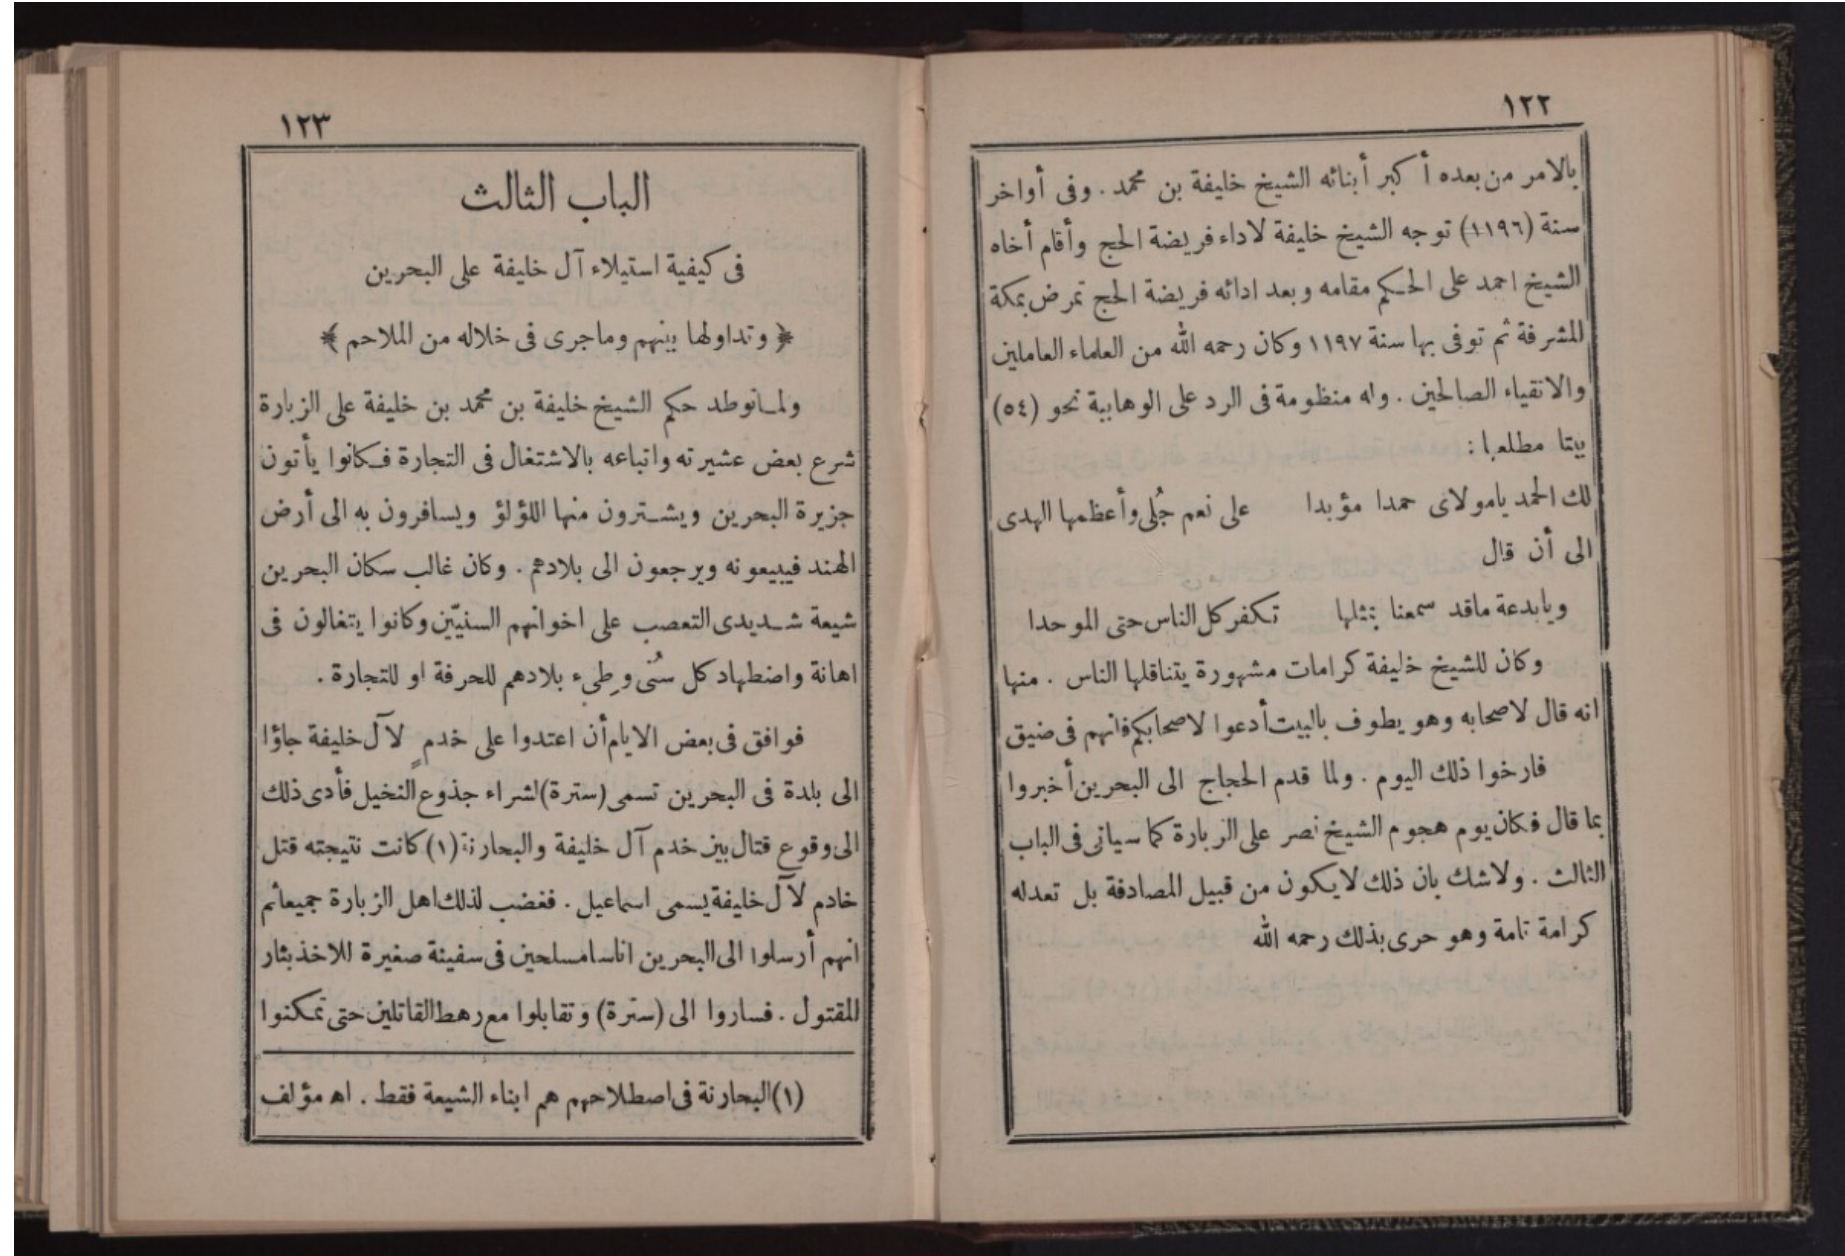 ١٢٢
بالامر من بعده أكبر أبنائه الشيخ خليفة بن محمد . وفى أواخر
سنة (١١٩٦) توجه الشيخ خليفة لاداء فريضة الحج وأقام أخاه
الشيخ احمد على الحكم مقامه وبعد ادائه فريضة الحج تمرض بمكة
المشرفة ثم توفى بها سنة ١١٩٧ وكان رحمه الله من العلماء العاملين
والاتقياء الصالحين . وله منظومة فى الرد على الوهابية نحو (٥٤)
بيتا مطلعها :
لك الحمد يامولاى حمدا مؤبدا على نعم جُلى وأعظمها الهدى
الى أن قال
ويابدعة ماقد سمعنا بمثلها تكفر كل الناس حتى الموحدا
وكان للشيخ خليفة كرامات مشهورة يتناقلها الناس . منها
انه قال لاصحابه وهو يطوف بالبيت أدعوا لاصحابكم فانهم فى ضيق
فارخوا ذلك اليوم . ولما قدم الحجاج الى البحرين أخبروا
بما قال فكان يوم هجوم الشيخ نصر على الزبارة كما سيأتى فى الباب
الثالث . ولاشك بان ذلك لايكون من قبيل المصادفة بل تعدله
كرامة تامة وهو حرى بذلك رحمه الله
١٢٣
الباب الثالث
فى كيفية استيلاء آل خليفة على البحرين
﴿ وتداولها بينهم وماجرى فى خلاله من الملاحم ﴾
ولما توطد حكم الشيخ خليفة بن محمد بن خليفة على الزبارة
شرع بعض عشيرته واتباعه بالاشتغال فى التجارة فكانوا يأتون
جزيرة البحرين ويشترون منها اللؤلؤ ويسافرون به الى أرض
الهند فيبيعونه ويرجعون الى بلادهم . وكان غالب سكان البحرين
شيعة شديدى التعصب على اخوانهم السنيّين وكانوا يتغالون فى
اهانة واضطهاد كل سُنى وطىء بلادهم للحرفة او للتجارة .
فوافق فى بعض الايام أن اعتدوا على خدمٍ لآل خليفة جاؤا
الى بلدة فى البحرين تسمى (سترة) لشراء جذوع النخيل فأدى ذلك
الى وقوع قتال بين خدم آل خليفة والبحارنة (١) كانت نتيجته قتل
خادم لآل خليفة يسمى اسماعيل . فغضب لذلك اهل الزبارة جميعا ثم
انهم أرسلوا الى البحرين اناسا مسلحين فى سفينة صغيرة للاخذ بثار
المقتول . فساروا الى (سترة) وتقابلوا مع رهط القاتلين حتى تمكنوا
(١) البحارنة فى اصطلاحهم هم ابناء الشيعة فقط . اه مؤلف